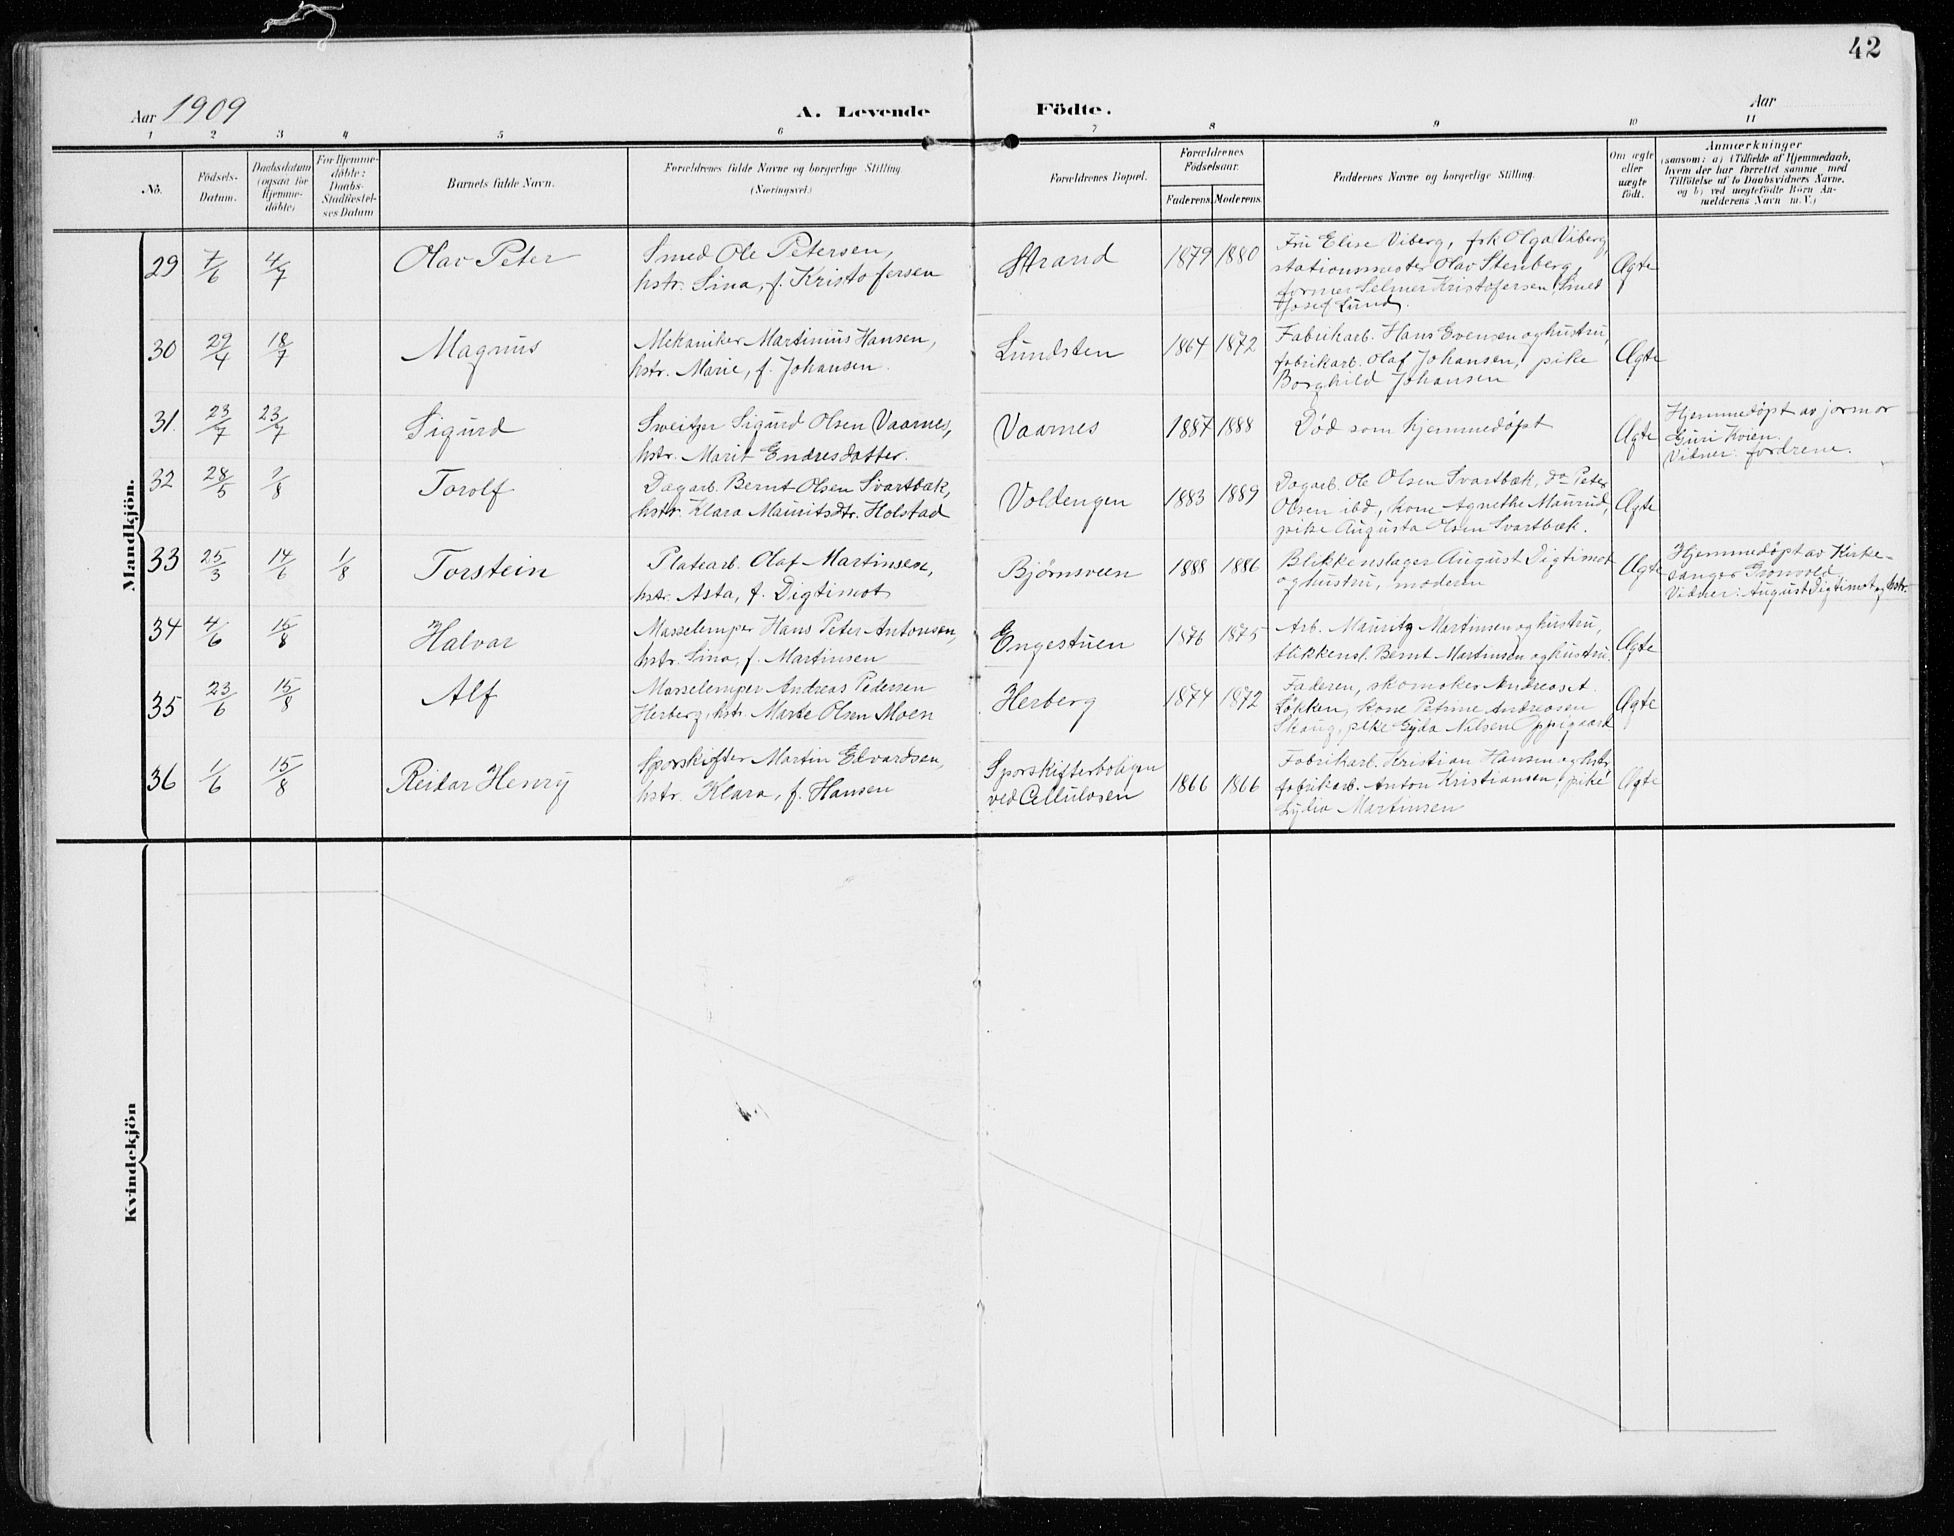 42
Aar 1909
A. Levende
Födte.
Aar
1 2 3 4 5 6 7 8 9 10 11
No.
Födsels-
Datum.
Daabsdatum
(ogsaa for
Hjemme-
döbte)
For Hjemme-
döbte:
Daabs-
Stadfæstel-
ses Datum
Barnets fulde Navn.
Forældrenes fulde Navne og borgerlige Stilling
(Næringsvei)
Forældrenes Bopæl.
Forældrenes
Födselsaar.
Faderens.
Moderens.
Faddernes Navne og borgerlige Stilling.
Om ægte
eller
uægte
födt.
Anmærkninger
(saasom: a) i Tilfælde af Hjemmedaab,
hvem der har forrettet samme med
Tilföielse af to Daabsvidners Navne,
og b) ved uægtefödte Börn An-
melderens Navn m. V.)
Mandkjön.
29 7/6 4/7 Olav Peter
Smed Ole Petersen,
hstr. Sina, f. Kristofersen
Strand 1879 1880
Fru Elise Viberg, frk Olga Viberg,
stationsmester Olav Stenberg,
former Selmer Kristofersen, Smed
Josef Lund.
Ægte
30 29/4 18/7 Magnus
Mekaniker Martinius Hansen,
hstr. Marie, f. Johansen.
Lundsten 1864 1872
Fabrikarb. Hans Evensen og hustru,
fabrikarb. Olaf Johansen, pike
Borghild Johansen
Ægte
31. 23/7 23/7 Sigurd
Sveitzer Sigurd Olsen Vaarnes,
hstr. Marit Endresdatter.
Vaarnes 1887 1888
Død som hjemmedøpt
Ægte
Hjemmedøpt av jormor
Guri Kvien.
Vidner: fordrene.
32 28/5 1/8 Torolf
Dagarb. Bernt Olsen Svartbæk,
hstr. Klara Mauritsdtr. Holstad
Voldengen 1883 1889
Dagarb. Ole Olsen Svartbæk, do Peter
Olsen ibd, kone Agnethe Maurud,
pike Augusta Olsen Svartbæk.
Ægte
33 25/3 14/6 1/8 Torstein
Platearb. Olaf Martinsen,
hstr. Asta, f. Digtimot
Bjørnsveen 1888 1886
Blikkenslager August Digtimot
og hustru, moderen
Ægte
Hjemmedøpt av Kirke-
sanger Grønvold
Vidner: August Digtimot og hstr.
34 4/6 15/8 Halvar
Masselemper Hans Peter Antonsen,
hstr. Lina, f. Martinsen
Engestuen 1876 1875
Arb. Mauritz Martinsen og hustru,
blikkensl. Bernt Martinsen og hustru.
Ægte
35 23/6 15/8 Alf
Masselemper Andreas Pedersen
Herberg, hstr. Marte Olsen Moen
Herberg 1874 1872
Faderen, skomaker Andreas
Løkken, kone Petrine Andreasen
Skaug, pike Gyda Nilsen Oppigaard
Ægte
36 1/6 15/8 Reidar Henry
Sporskifter Martin Edvardsen,
hstr. Klara, f. Hansen
Sporskifterboligen
ved Cellulosen
1866 1866
Fabrikarb. Kristian Hansen og hstr
fabrikarb. Anton Kristiansen, pike
Lydia Martinsen
Ægte
Kvindekjön